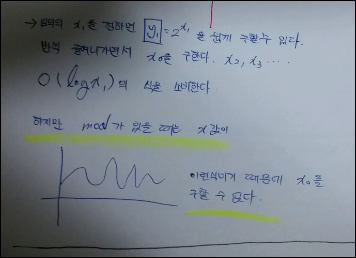 → 임의의 x₁을 정하면 y₁ = 2^x₁ 을 쉽게 구할 수 있다.
반씩 줄여나가면서 x₀를 구한다. x₂, x₃ ....
O(log x₁)의 식을 소비한다
하지만 mod가 있을 때는 x값이
이런식이기 때문에 x₀를
구할 수 없다.